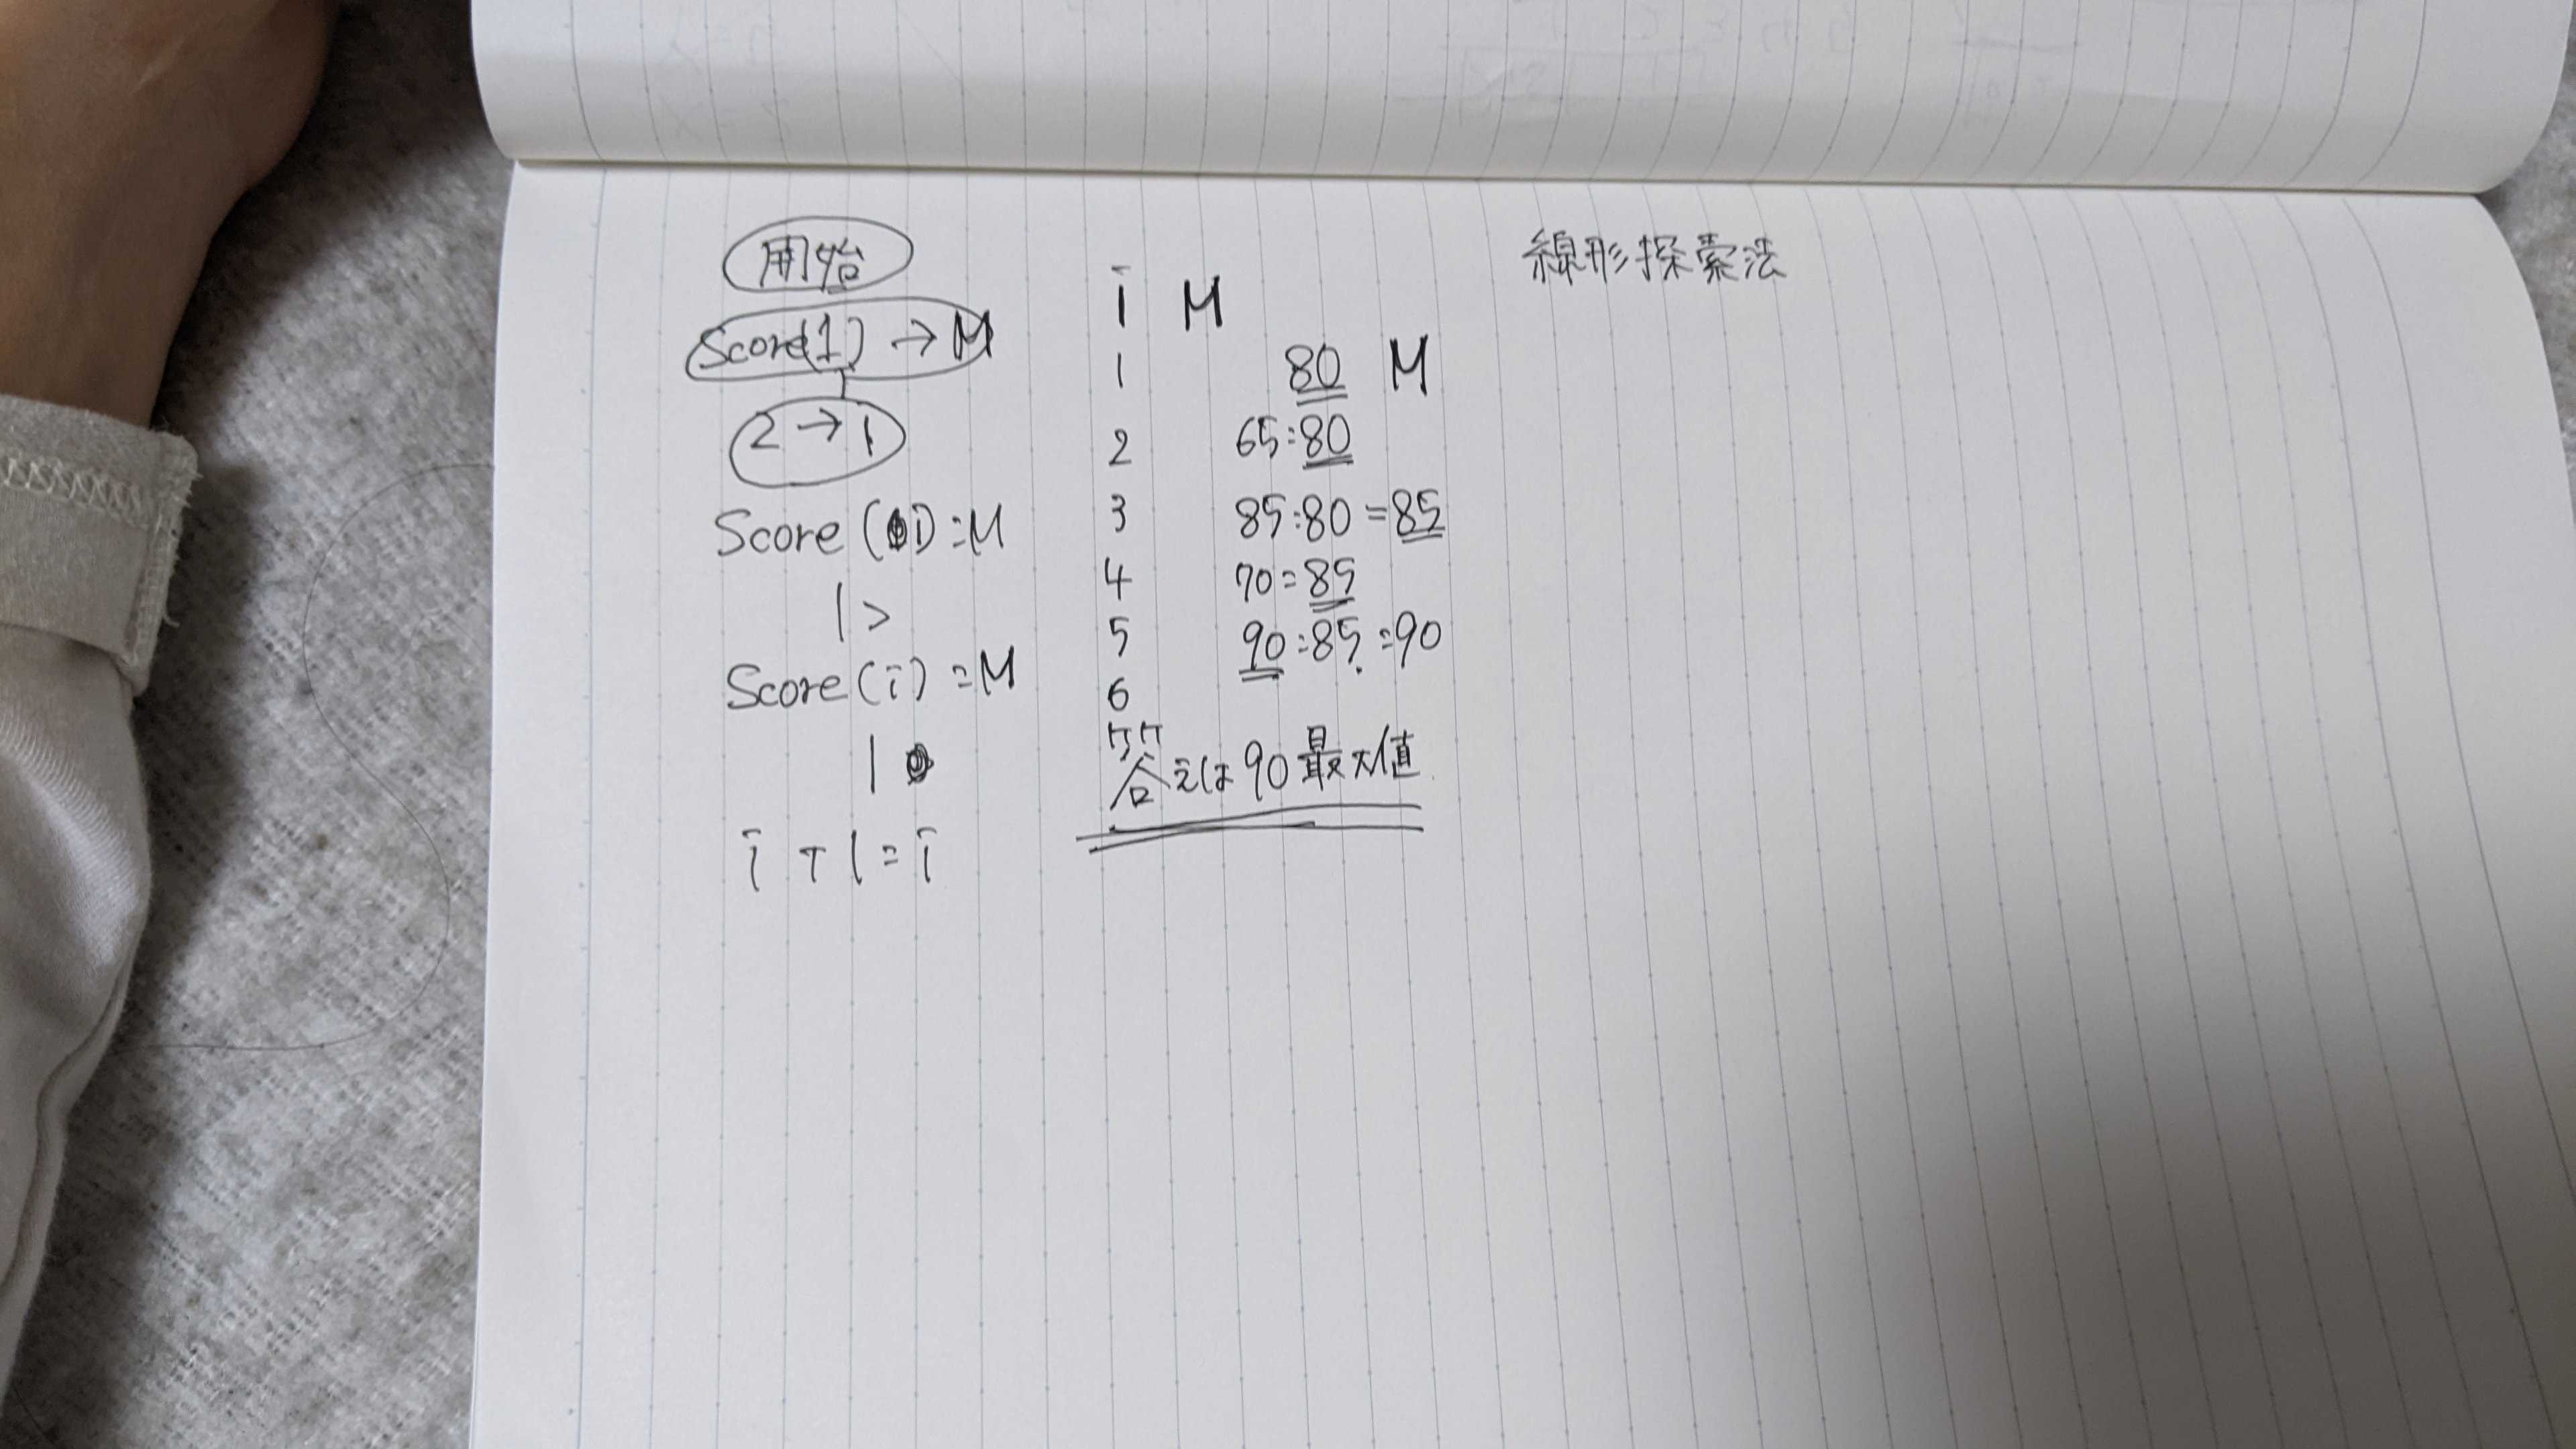 開始
Score(1) → M
2 → i
Score (i) : M
| >
Score (i) = M
|
i + 1 = i
i M
1 80 M
2 65:80
3 85:80 = 85
4 70:85
5 90:85 = 90
6
答えは90最大値
線形探索法